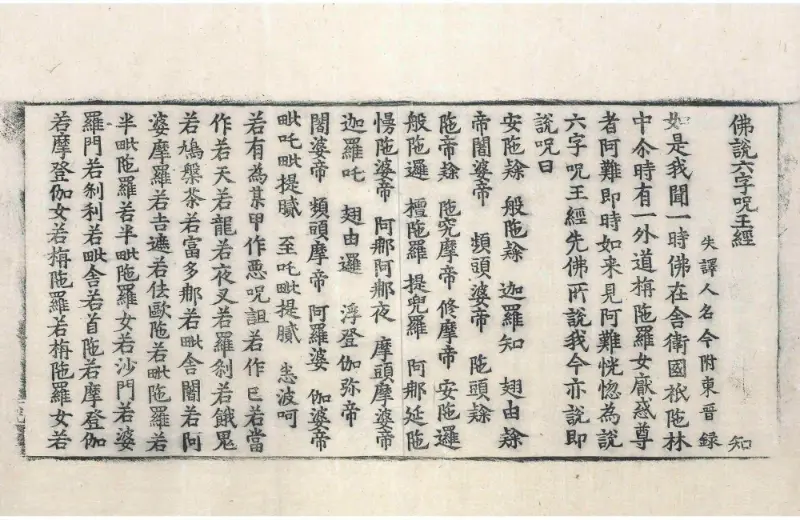 佛說六字呪王經 知
失譯人名今附東晉録
如是我聞一時佛在舍衛國祇陁林
中尒時有一外道栴陁羅女厭惑尊
者阿難即時如来見阿難恍惚為說
六字呪王經先佛所說我今亦說即
說呪曰
安陁𮈔 般陁𮈔 迦羅知 翅由𮈔
帝闍婆帝 頻頭婆帝 陁頭𮈔
陁帝𮈔 陁究摩帝 修摩帝 安陁邏
般陁邏 擅陁羅 提兜羅 阿那延陁
愓陁婆帝 阿那阿那夜 摩頭摩婆帝
迦羅吒 翅由邏 浮登伽弥帝
闍婆帝 頻頭摩帝 阿羅婆 伽婆帝
毗吒毗提膩 至吒毗提膩 恙波呵
若有為某甲作悪呪詛若作巳若當
作若天若龍若夜叉若羅剎若餓鬼
若鳩槃荼若富多那若毗舍闍若阿
婆摩羅若吉遮若佉歐陁若毗陁羅若
半毗陁羅若半毗陁羅女若沙門若婆
羅門若剎利若毗舍若首陁若摩登伽
若摩登伽女若栴陁羅若栴陁羅女若